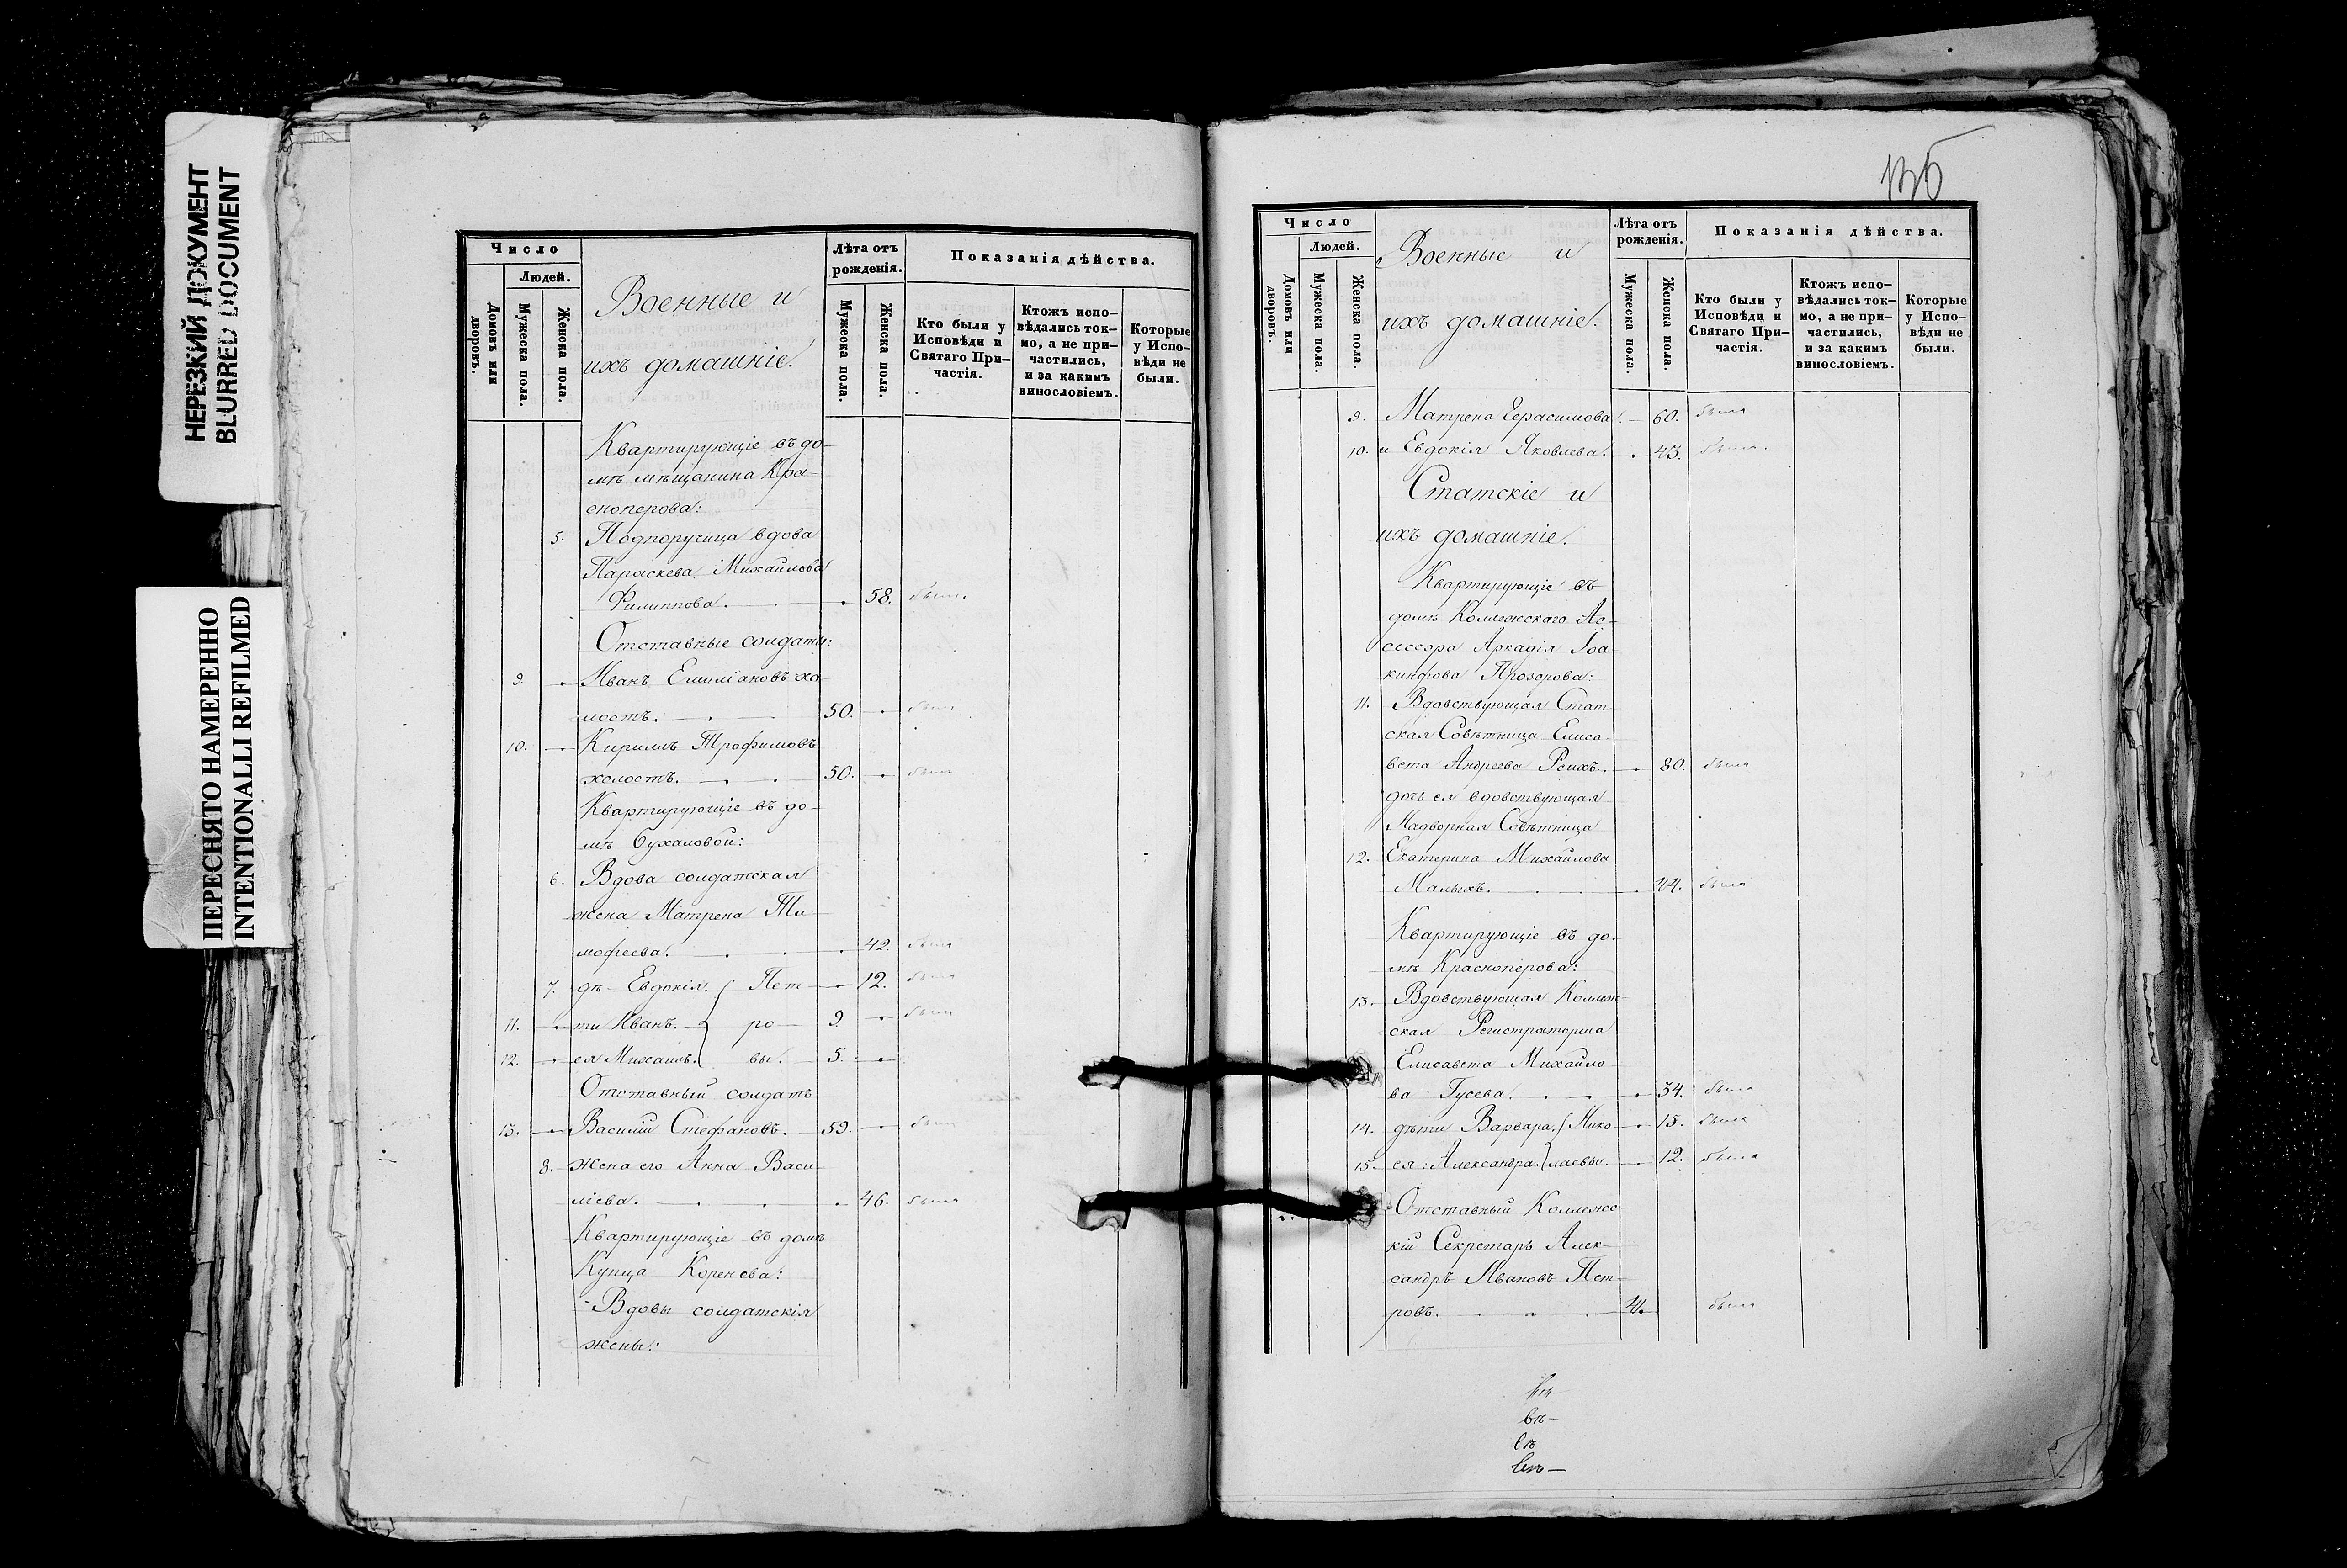 НЕРЕЗКИЙ ДОКУМЕНТ
BLURRED DOCUMENT
ПЕРЕСНЯТО НАМЕРЕННО
INTENTIONALLI REFILMED
Число
Людей.
Домовъ или дворовъ.
Мужеска пола.
Женска пола.
Военные и
ихъ домашніе.
Лѣта отъ
рожденія.
Мужеска пола.
Женска пола.
Показанія дѣйства.
Кто были у
Исповѣди и
Святаго При-
частія.
Ктожъ испо-
вѣдались ток-
мо, а не при-
частились,
и за какимъ
винословіемъ.
Которые
у Испо-
вѣди не
были.
Квартирующіе въ до-
мѣ мѣщанина Кра-
сноперова:
5. Подпоручица вдова
Параскева Михайлова
Филиппова. 58. была
Отставные солдаты:
9. Иванъ Емиліановъ хо-
лостъ. 50. былъ
10. Кириллъ Трофимовъ
холостъ. 50. былъ
Квартирующіе въ до-
мѣ Сухаловой:
6. Вдова солдатская
жена Матрена Ти-
мофеева. 42. была
7. дѣ- Евдокія. Пет- 12. была
11. ти Иванъ. ро- 9. былъ
12. ея Михаилъ. вы. 5.
Отставный солдатъ
13. Василій Стефановъ. 59. былъ
8. Жена его Анна Васи-
ліева. 46. была
Квартирующіе въ домѣ
Купца Коренева:
Вдовы солдатскія
жены:
136
Число
Людей.
Домовъ или дворовъ.
Мужеска пола.
Женска пола.
Военные и
ихъ домашніе.
Лѣта отъ
рожденія.
Мужеска пола.
Женска пола.
Показанія дѣйства.
Кто были у
Исповѣди и
Святаго При-
частія.
Ктожъ испо-
вѣдались ток-
мо, а не при-
частились,
и за какимъ
винословіемъ.
Которые
у Испо-
вѣди не
были.
9. Матрена Герасимова. 60. была
10. и Евдокія Яковлева. 43. была.
Статскіе и
ихъ домашніе.
Квартирующіе въ
домѣ Коллежскаго Ас-
сессора Аркадія Іоа-
кинфова Прозорова:
11. Вдовствующая Стат-
ская Совѣтница Елиса-
вета Андреева Рейхъ. 80. была
дочь ея вдовствующая
Надворная Совѣтница
12. Екатерина Михайлова
Малыхъ. 44. была
Квартирующіе въ до-
мѣ Красноперова:
13. Вдовствующая Коллеж-
ская Регистраторша
Елисавета Михайло-
ва Гусева. 34. была
14. дѣти Варвара. Нико- 15. была
15. ея: Александра. лаевы. 12. была
Отставный Коллежс-
кій Секретарь Алек-
сандръ Ивановъ Пет-
ровъ. 41. былъ